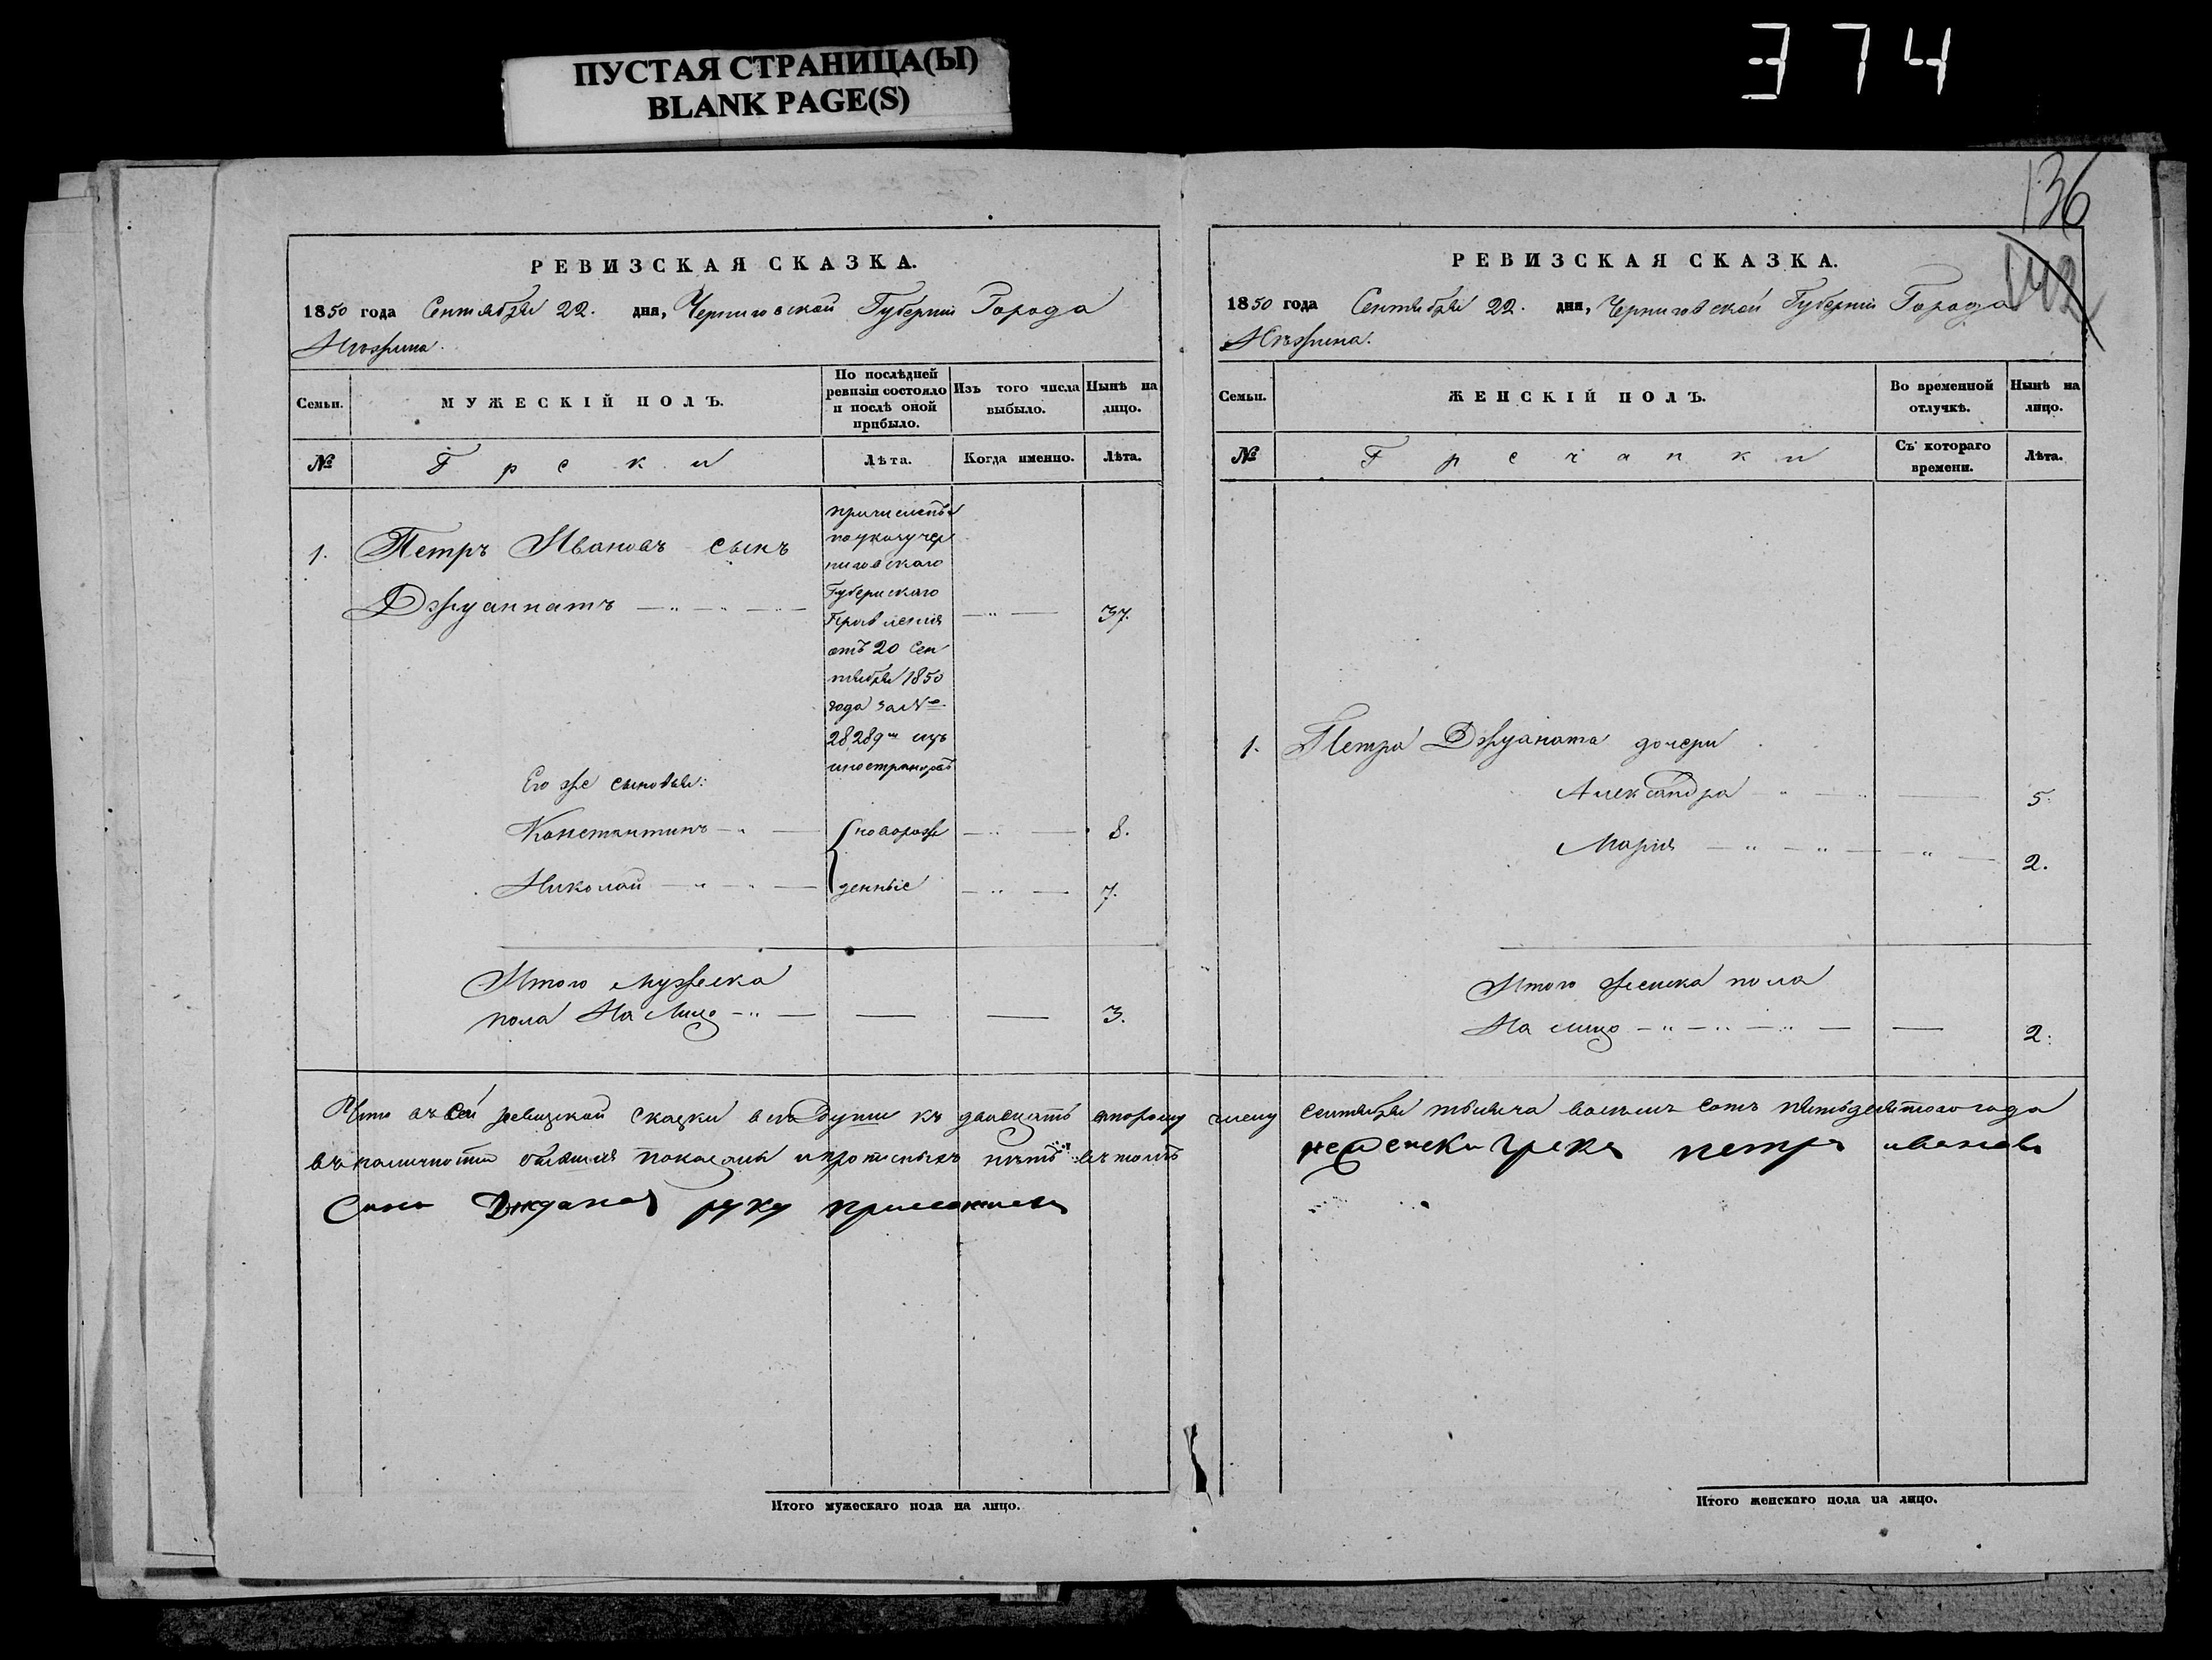 ПУСТАЯ СТРАНИЦА(Ы)
BLANK PAGE(S)
374
136
142
РЕВИЗСКАЯ СКАЗКА.
1850 года Сентября 22. дня, Черниговской Губерніи Города
Нѣжина.
Семьи. МУЖЕСКІЙ ПОЛЪ. По послѣдней ревизіи состояло и послѣ оной прибыло. Изъ того числа выбыло. Нынѣ на лицо.
№ Греки Лѣта. Когда именно. Лѣта.
1. Петръ Ивановъ сынъ
Джуаннатъ 37.
причисленъ
по указу Чер
ниговскаго
Губернскаго
Правленія
отъ 20 Сен
тября 1850
года за №
28289м изъ
иностранцовъ
Его же сыновья:
Константинъ новорож 8.
Николай денные 7.
Итого мужеска
пола На Лицо 3.
Что въ сей ревизской сказки все Души къ двадцать второму
въ наличности показаны и прописныхъ нѣтъ въ томъ
Сынъ руку приложилъ
Итого мужескаго пола на лицо.
РЕВИЗСКАЯ СКАЗКА.
1850 года Сентября 22. дня, Черниговской Губерніи Города
Нѣжина.
Семьи. ЖЕНСКІЙ ПОЛЪ. Во временной отлучкѣ. Нынѣ на лицо.
№ Гречанки Съ котораго времени. Лѣта.
1. Петра Джуаната дочери
Александра 5.
Марія 2.
Итого женска пола
На лицо 2.
числу Сентября тысяча восемь сотъ пятьдесятого года
грекъ петръ ивановъ
Итого женскаго пола на лицо.